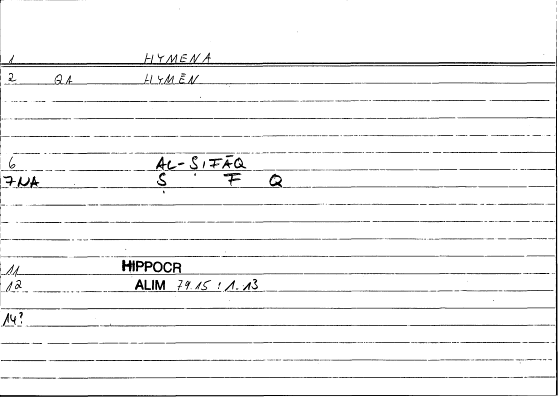 1 HYMENA
2 QA HYMĒN
6 AL-ṢIFĀQ
7NA Ṣ F Q
11 HIPPOCR
12 ALIM 79.15 : 1.13
14?